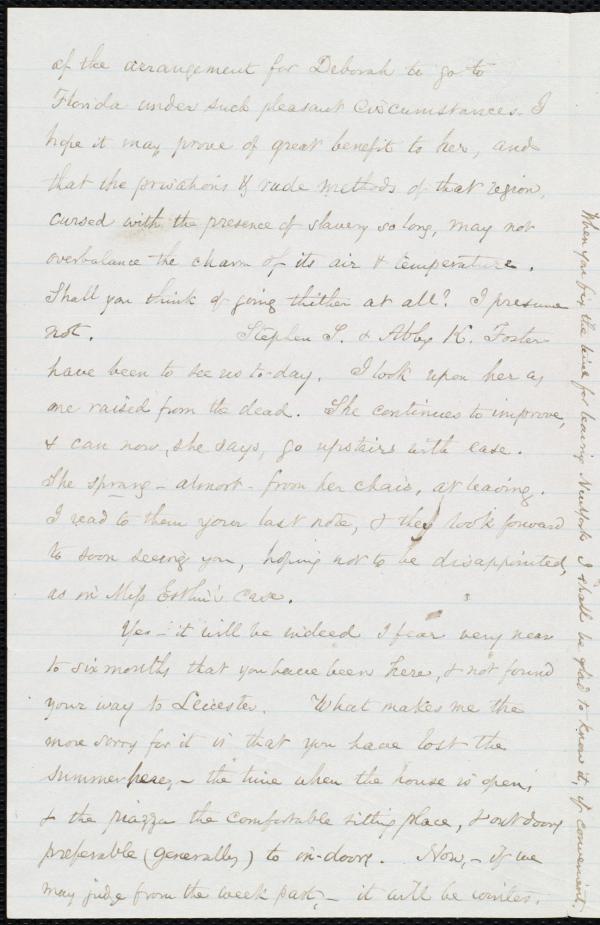 of the arrangement for Deborah to go to
Florida under such pleasant circumstances. I
hope it may prove of great benefit to her, and
that the privations & rude methods of that region,
cursed with the presence of slavery so long, may not
overbalance the charm of its air & temperature.
Shall you think of going thither at all? I presume
not. Stephen S. & Abby K. Foster
have been to see us to-day. I look upon her as
one raised from the dead. She continues to improve,
& can now, she says, go upstairs with ease.
She sprang - almost - from her chair, at leaving.
I read to them your last note, & they look forward
to soon seeing you, hoping not to be disappointed,
as in Miss Esther's case.
Yes - it will be indeed I fear very near
to six months that you have been here, & not found
your way to Leicester. What makes me the
more sorry for it is that you have lost the
summer here, - the time when the house is open,
& the piazza the comfortable sitting place, & out doors
preferable (generally) to in-doors. Now, - if we
may judge from the week past, - it will be winter.
When you fix the time for leaving New York I shall be glad to know it, if convenient.